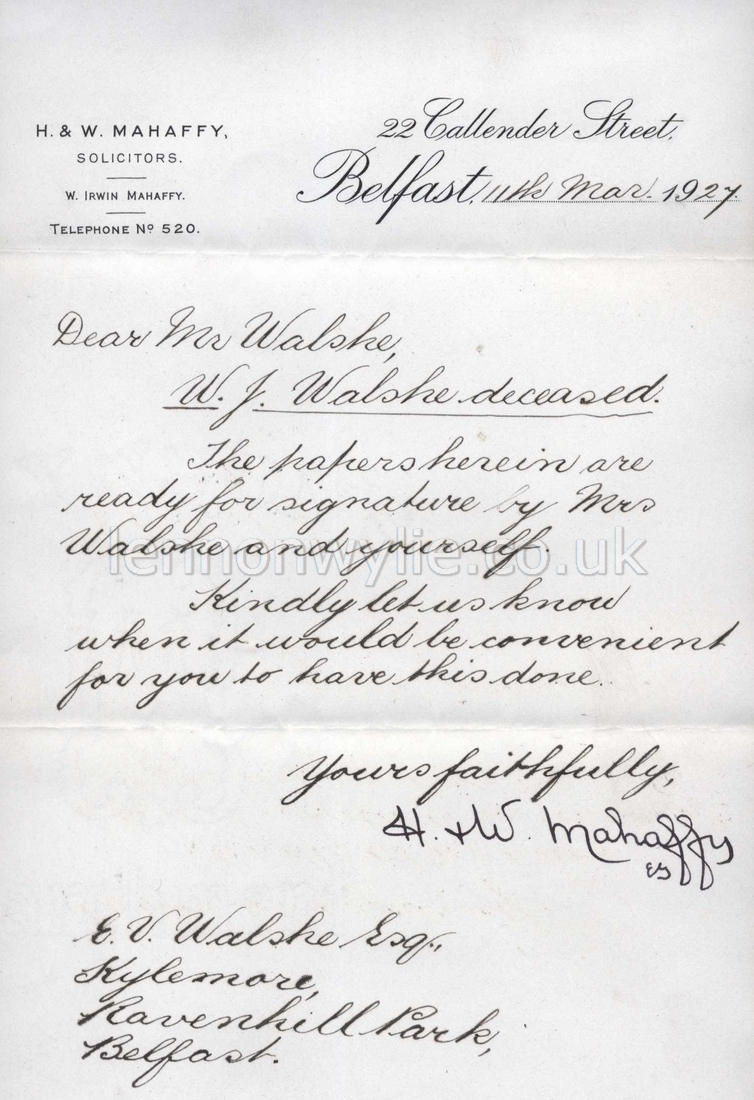 H. & W. MAHAFFY,
SOLICITORS.
W. IRWIN MAHAFFY.
TELEPHONE Nº 520.
22 Callender Street,
Belfast, 11th Mar. 1927.
Dear Mr Walshe,
W. J. Walshe deceased.
The papers herein are
ready for signature by Mrs
Walshe and yourself.
lennonwylie.co.uk
Kindly let us know
when it would be convenient
for you to have this done.
Yours faithfully,
H. & W. Mahaffy
E. V. Walshe Esq.,
Kylemore,
Ravenhill Park,
Belfast.